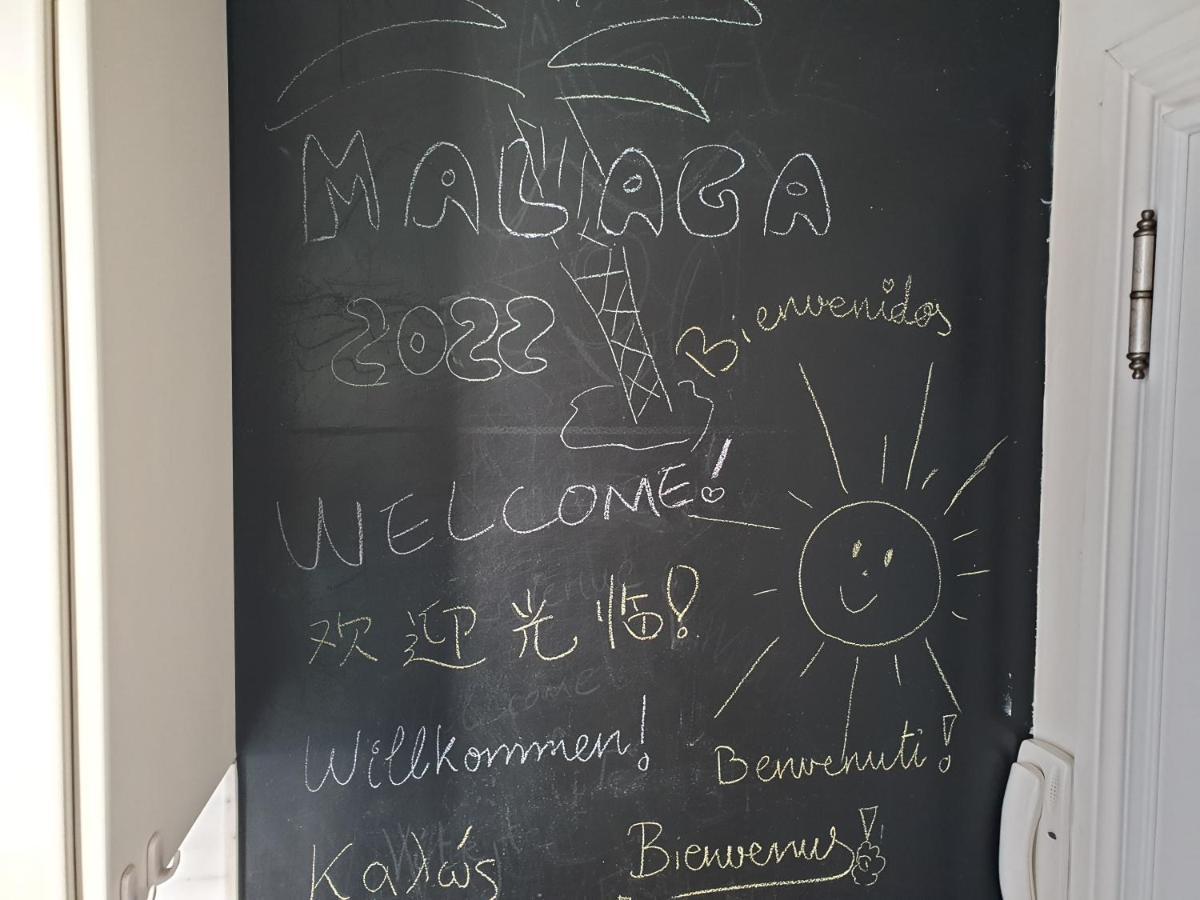 MALAGA
2022
Bienvenidos
WELCOME!
欢迎光临!
Willkommen!
Benvenuti!
Καλώς
Bienvenus!